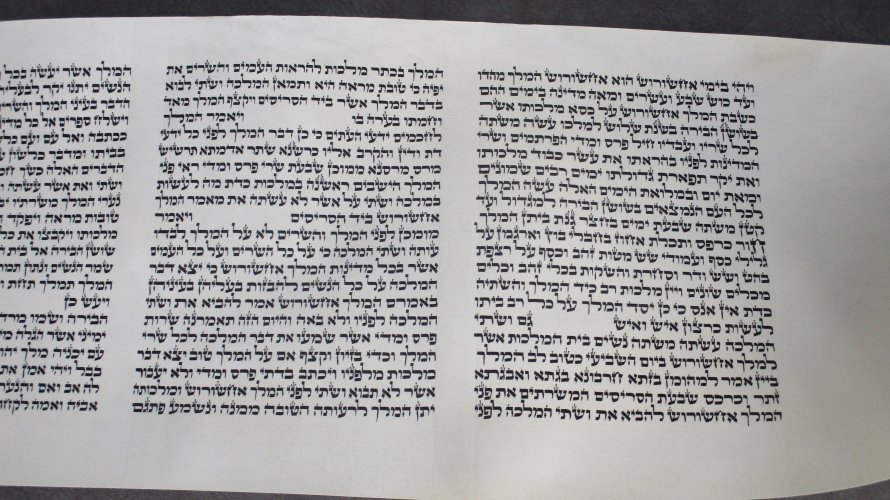 ויהי בימי אחשורוש הוא אחשורוש המלך מהדו
ועד כוש שבע ועשרים ומאה מדינה בימים ההם
כשבת המלך אחשורוש על כסא מלכותו אשר
בשושן הבירה בשנת שלוש למלכו עשה משתה
לכל שריו ועבדיו חיל פרס ומדי הפרתמים ושרי
המדינות לפניו בהראתו את עשר כבוד מלכותו
ואת יקר תפארת גדולתו ימים רבים שמונים
ומאת יום ובמלואת הימים האלה עשה המלך
לכל העם הנמצאים בשושן הבירה למגדול ועד
קטן משתה שבעת ימים בחצר גנת ביתן המלך
חור כרפס ותכלת אחוז בחבלי בוץ וארגמן על
גלילי כסף ועמודי שש מטות זהב וכסף על רצפת
בהט ושש ודר וסחרת והשקות בכלי זהב וכלים
מכלים שונים ויין מלכות רב כיד המלך והשתיה
כדת אין אנס כי כן יסד המלך על כל רב ביתו
לעשות כרצון איש ואיש גם ושתי
המלכה עשתה משתה נשים בית המלכות אשר
למלך אחשורוש ביום השביעי כטוב לב המלך
ביין אמר למהומן בזתא חרבונא בגתא ואבגתא
זתר וכרכס שבעת הסריסים המשרתים את פני
המלך אחשורוש להביא את ושתי המלכה לפני
המלך בכתר מלכות להראות העמים והשרים את
יפיה כי טובת מראה היא ותמאן המלכה ושתי לבוא
בדבר המלך אשר ביד הסריסים ויקצף המלך מאד
וחמתו בערה בו ויאמר המלך
לחכמים ידעי העתים כי כן דבר המלך לפני כל ידעי
דת ודין והקרב אליו כרשנא שתר אדמתא תרשיש
מרס מרסנא ממוכן שבעת שרי פרס ומדי ראי פני
המלך הישבים ראשנה במלכות כדת מה לעשות
במלכה ושתי על אשר לא עשתה את מאמר המלך
אחשורוש ביד הסריסים ויאמר
מומכן לפני המלך והשרים לא על המלך לבדו
עותה ושתי המלכה כי על כל השרים ועל כל העמים
אשר בכל מדינות המלך אחשורוש כי יצא דבר
המלכה על כל הנשים להבזות בעליהן בעיניהן
באמרם המלך אחשורוש אמר להביא את ושתי
המלכה לפניו ולא באה והיום הזה תאמרנה שרות
פרס ומדי אשר שמעו את דבר המלכה לכל שרי
המלך וכדי בזיון וקצף אם על המלך טוב יצא דבר
מלכות מלפניו ויכתב בדתי פרס ומדי ולא יעבור
אשר לא תבוא ושתי לפני המלך אחשורוש ומלכותה
יתן המלך לרעותה הטובה ממנה ונשמע פתגם
המלך אשר יעשה בכל
הנשים יתנו יקר לבעלי
הדבר בעיני המלך והשרי
וישלח ספרים אל כל מדי
ככתבה ואל עם ועם כל
בביתו ומדבר כלשון
הדברים האלה כשך
ושתי ואת אשר עשתה
נערי המלך משרתיו
טובות מראה ויפקד
מלכותו ויקבצו את כל
שושן הבירה אל בית
שמר הנשים ונתון
המלך תמלך תחת
ויעש כן
הבירה ושמו מרד
ימיני אשר הגלה
עם יכניה מלך יהו
בבל ויהי אמן את
לה אב ואם והנער
אביה ואמה לקחה